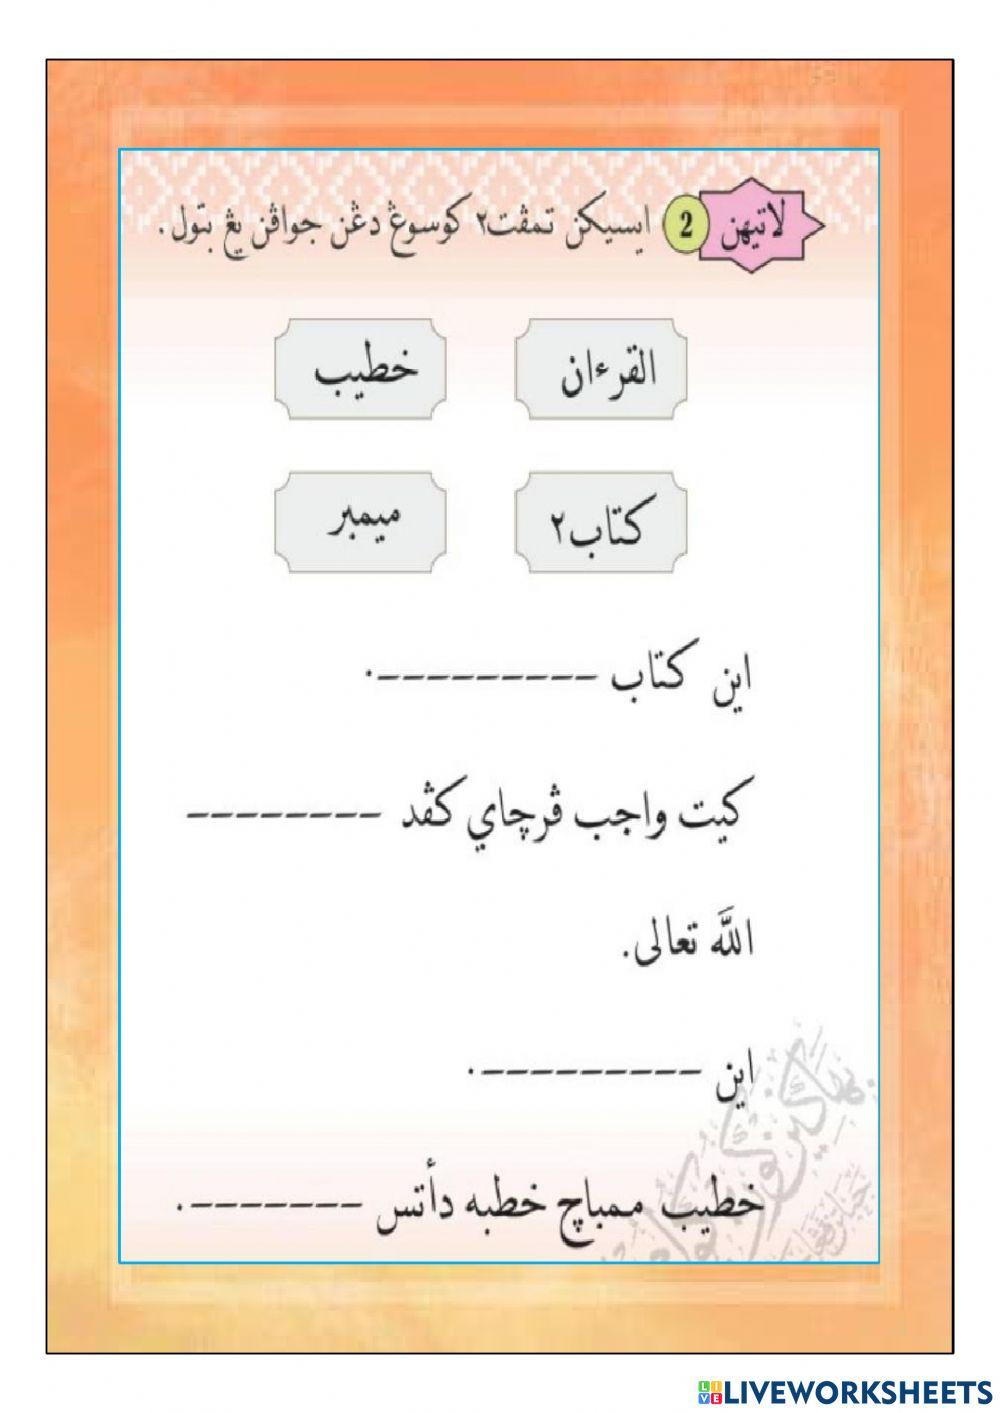 لاتيهن 2 ايسيكن تمڤت٢ كوسوڠ دڠن جواڤن يڠ بتول.
القرءان خطيب
كتاب٢ ميمبر
اين كتاب ـــــــــ.
كيت واجب ڤرچاي كڤد ــــــــ
اللَّه تعالى.
اين ـــــــــ.
خطيب ممباچ خطبه دأتس ـــــــ.
LIVEWORKSHEETS